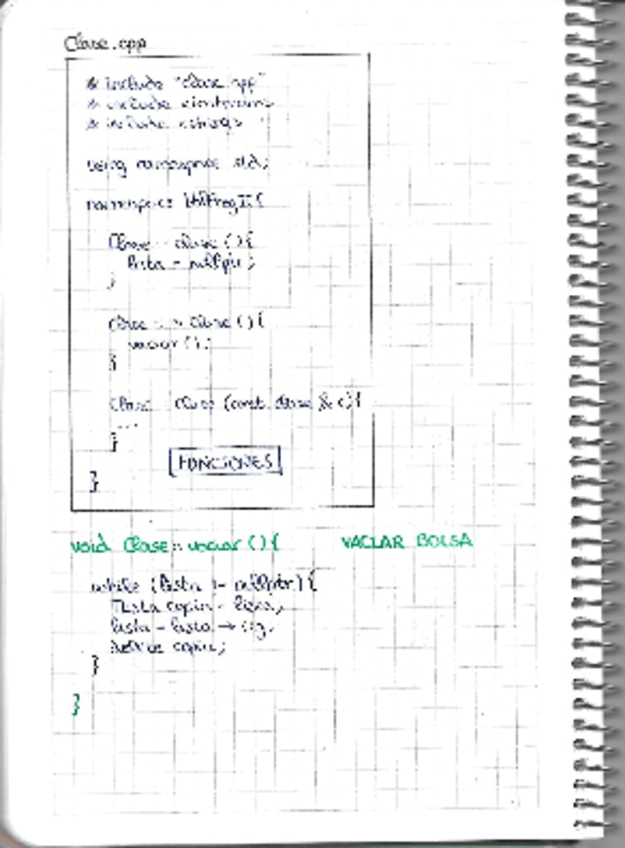 Clase.cpp
# include "clase.cpp"
# include <iostream>
# include <string>
using namespace std;
namespace
Clase :: clase () {
lista = nullptr;
}
Clase :: ~ Clase () {
vaciar ();
}
Clase :: Clase (const Clase & c) {
...
}
FUNCIONES
}
void Clase :: vaciar () { VACIAR BOLSA
while (lista != nullptr) {
TLista copia = lista;
lista = lista → sig;
delete copia;
}
}